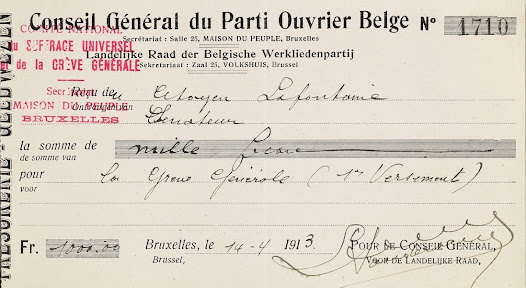 Conseil Général du Parti Ouvrier Belge No 1710
Secrétariat : Salle 25, MAISON DU PEUPLE, Bruxelles
Landelijke Raad der Belgische Werkliedenpartij
Sekretariaat : Zaal 25, VOLKSHUIS, Brussel
COMITÉ NATIONAL
du SUFFRAGE UNIVERSEL
et de la GRÈVE GÉNÉRALE
MAISON DU PEUPLE
BRUXELLES
Reçu du Citoyen Lafontaine
Ontvangen van Sénateur
la somme de mille francs
de somme van
pour La Grève Générale (1er Versement)
voor
Fr. 1000.00 Bruxelles, le 14-4 1913. POUR LE CONSEIL GÉNÉRAL,
Brussel, VOOR DE LANDELIJKE RAAD,